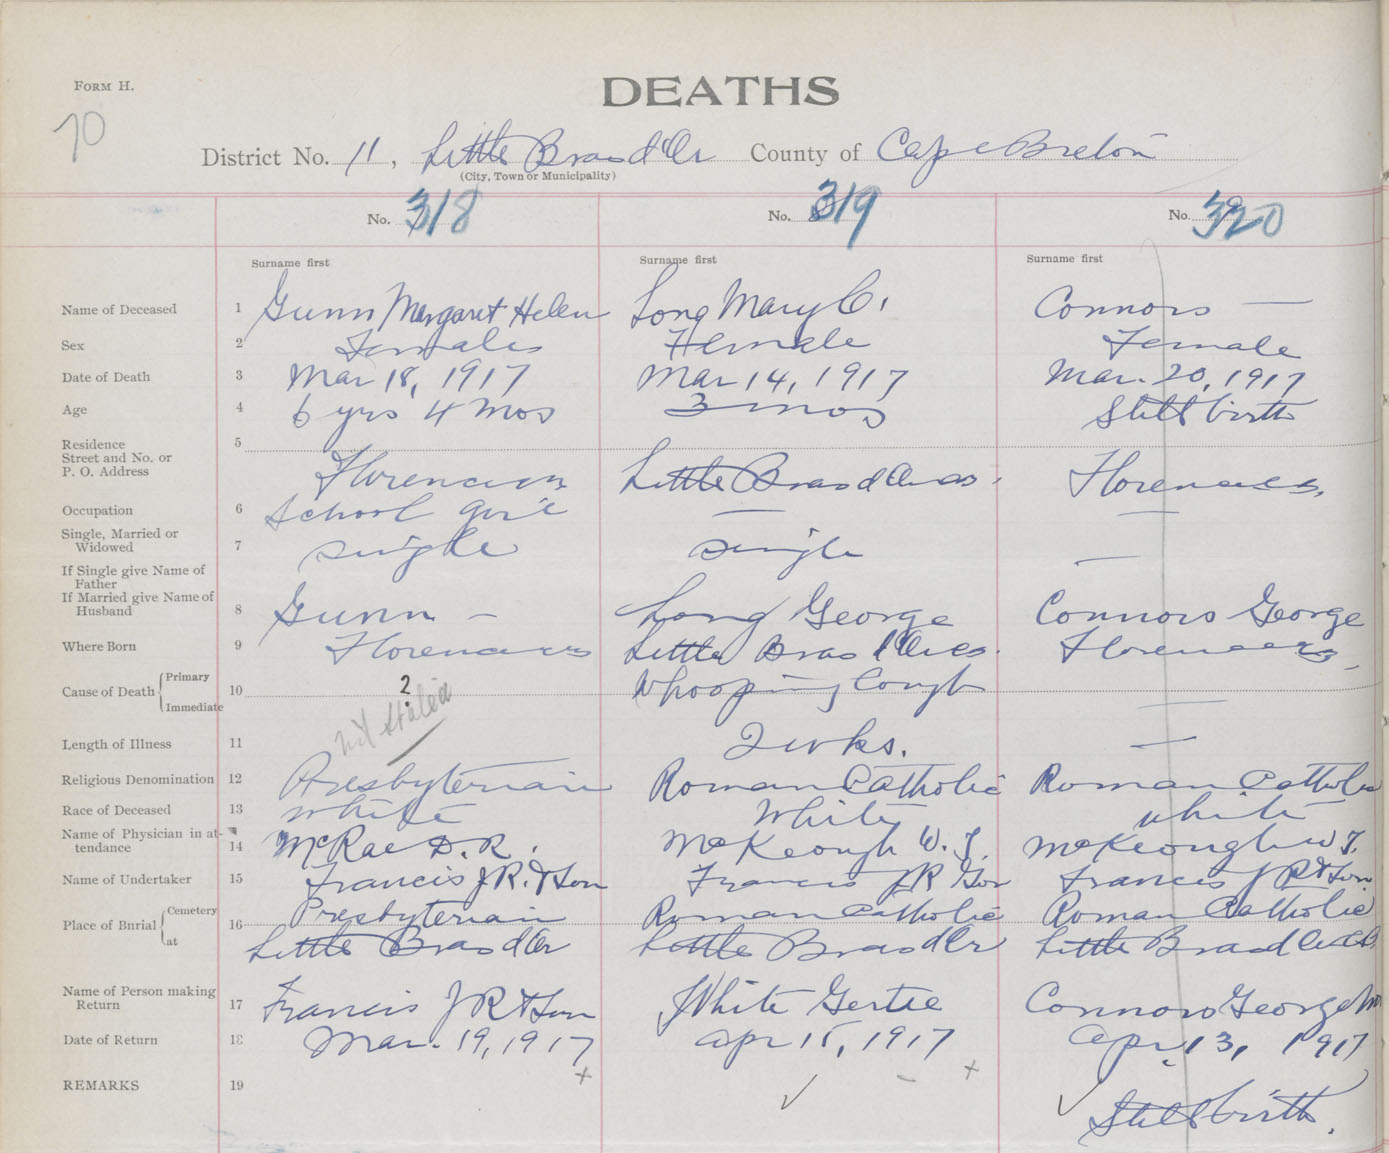 FORM H.
DEATHS
70
District No. 11, Little Bras d'Or County of Cape Breton
(City, Town or Municipality)
No. 318 No. 319 No. 320
Surname first Surname first Surname first
Name of Deceased 1 Gunn Margaret Helen Long Mary C. Connors —
Sex 2 Female Female Female
Date of Death 3 Mar 18, 1917 Mar 14, 1917 Mar. 20, 1917
Age 4 6 yrs 4 mos 3 mos Stillbirth
Residence 5
Street and No. or
P. O. Address Florence Little Bras d'Or Florence
Occupation 6 School girl — —
Single, Married or
Widowed 7 single single —
If Single give Name of
Father
If Married give Name of
Husband 8 Gunn — Long George Connors George
Where Born 9 Florence Little Bras d'Or Florence
Cause of Death Primary 10 ? Whooping Cough
Immediate not stated —
Length of Illness 11 2 wks. —
Religious Denomination 12 Presbyterian Roman Catholic Roman Catholic
Race of Deceased 13 White White white
Name of Physician in at-
tendance 14 McRae D. R. McKeough W. J. McKeough W J.
Name of Undertaker 15 Francis J R. & Son Francis J R Son Francis J R & Son
Place of Burial Cemetery 16 Presbyterian Roman Catholic Roman Catholic
at Little Bras d'Or Little Bras d'Or Little Bras d'Or C.B.
Name of Person making
Return 17 Francis J R & Son White Gertie Connors George
Date of Return 18 Mar. 19, 1917 Apr 15, 1917 Apr. 13, 1917
REMARKS 19 Stillbirth.